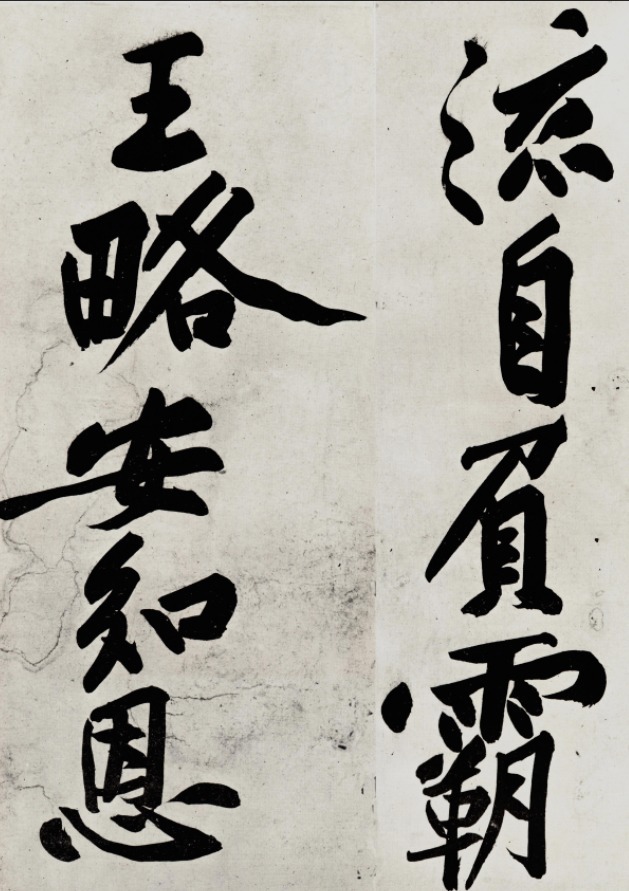 流自負霸
王略安知恩